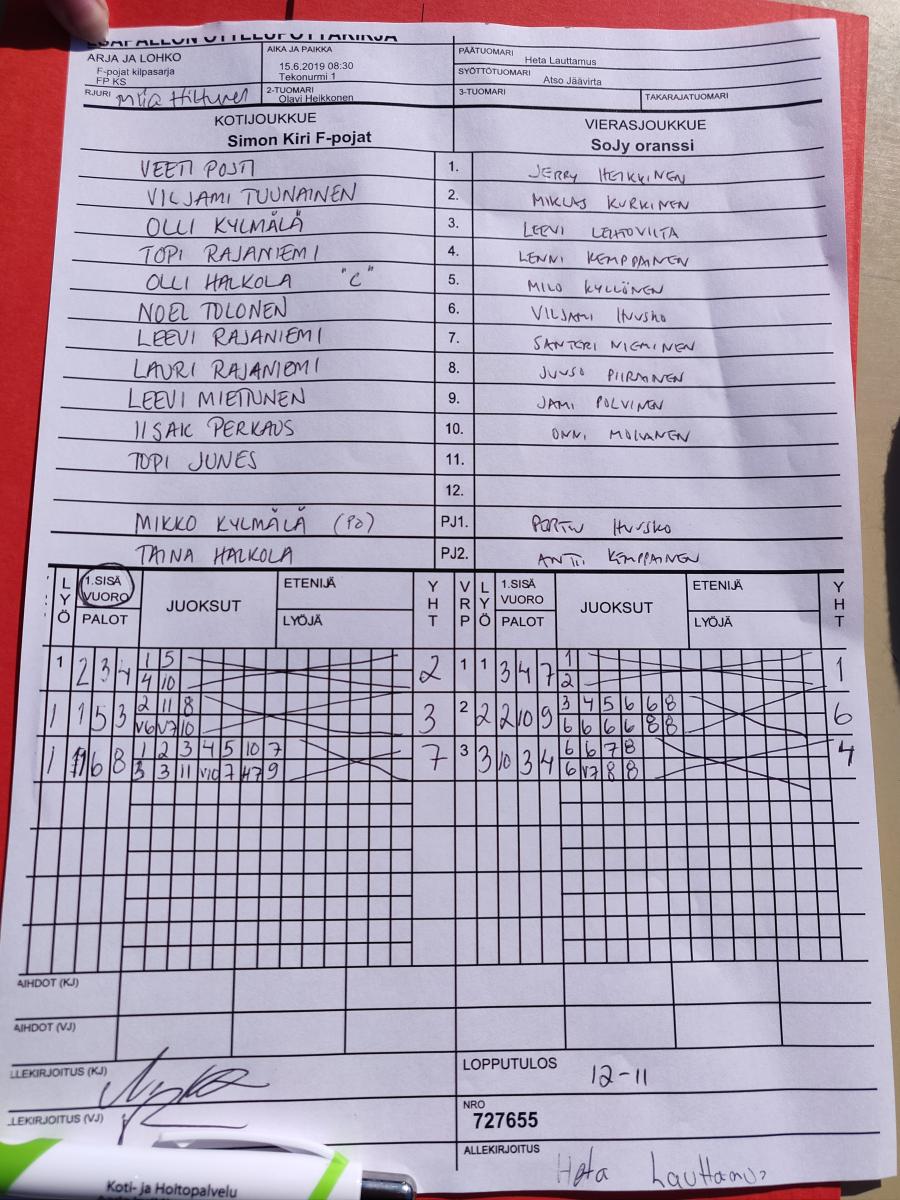 ESÄPALLON OTTELUPÖYTÄKIRJA
ARJA JA LOHKO
F-pojat kilpasarja
FP KS
AIKA JA PAIKKA
15.6.2019 08:30
Tekonurmi 1
PÄÄTUOMARI Heta Lauttamus
SYÖTTÖTUOMARI Atso Jäävirta
RJURI Miia Hiltunen
2-TUOMARI
Olavi Heikkonen
3-TUOMARI
TAKARAJATUOMARI
KOTIJOUKKUE
Simon Kiri F-pojat
VIERASJOUKKUE
SoJy oranssi
VEETI POSTI 1. JERRY HEIKKINEN
VILJAMI TUUNAINEN 2. MIKLAS KURKINEN
OLLI KYLMÄLÄ 3. LEEVI LEHTOVILTA
TOPI RAJANIEMI 4. LENNI KEMPPAINEN
OLLI HALKOLA "C" 5. MILO KYLLÖNEN
NOEL TOLONEN 6. VILJAMI HUUSKO
LEEVI RAJANIEMI 7. SANTERI NIEMINEN
LAURI RAJANIEMI 8. JUUSO PIIRAINEN
LEEVI MIETTUNEN 9. JAMI POLVINEN
IISAK PERKAUS 10. ONNI MOILANEN
TOPI JUNES 11.
12.
MIKKO KYLMÄLÄ (PÖ) PJ1. PORTU HUUSKO
TAINA HALKOLA PJ2. ANTTI KEMPPAINEN
LYÖ
1.SISÄ
VUORO
PALOT
JUOKSUT
ETENIJÄ
LYÖJÄ
YHT
VRP
LYÖ
1.SISÄ
VUORO
PALOT
JUOKSUT
ETENIJÄ
LYÖJÄ
YHT
1 2 3 4 1 5 2 1 1 3 4 7 1 1
4 10 2
1 1 5 3 2 11 8 3 2 2 2 10 9 3 4 5 6 6 8 6
V6 V7 10 6 6 6 6 8 8
1 11 6 8 1 2 3 4 5 10 7 7 3 3 10 3 4 6 6 7 8 4
3 3 11 V10 7 H7 9 6 V7 8 8
AIHDOT (KJ)
AIHDOT (VJ)
LLEKIRJOITUS (KJ)
LOPPUTULOS 12-11
LEKIRJOITUS (VJ)
NRO
727655
ALLEKIRJOITUS Heta Lauttamus
Koti- ja Hoitopalvelu